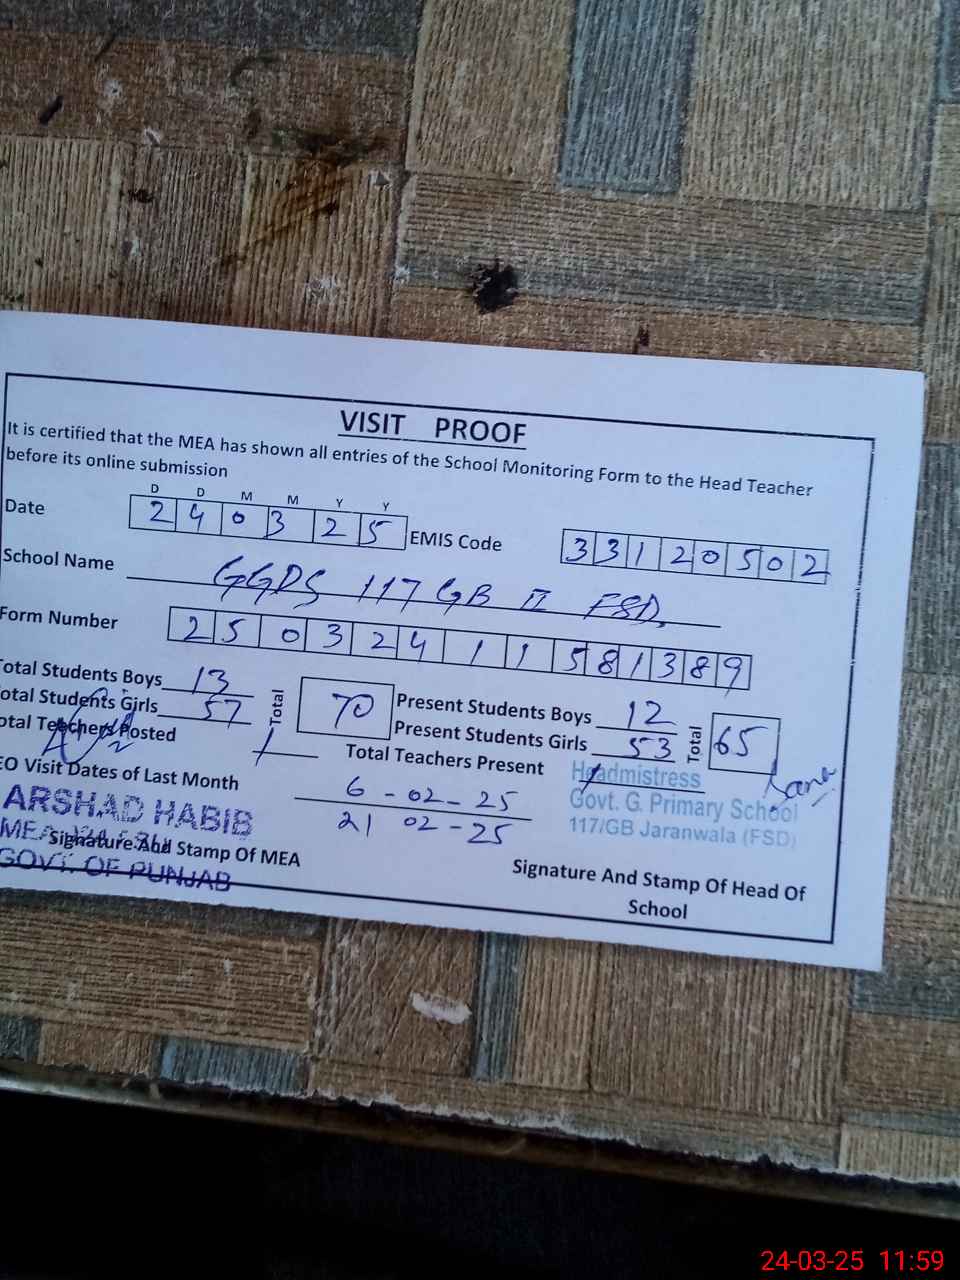 VISIT PROOF
It is certified that the MEA has shown all entries of the School Monitoring Form to the Head Teacher
before its online submission
D D M M Y Y
Date 2 4 0 3 2 5 EMIS Code 3 3 1 2 0 5 0 2
School Name GGPS 117 GB II FSD.
Form Number 2 5 0 3 2 4 1 1 5 8 1 3 8 9
Total Students Boys 13 Total 70 Present Students Boys 12 Total 65
otal Students Girls 57 Present Students Girls 53
otal Teachers Posted 1 Total Teachers Present 1
EO Visit Dates of Last Month 6 - 02 - 25
21 02 - 25
ARSHAD HABIB
MEA
GOVT. OF PUNJAB
Signature And Stamp Of MEA
Headmistress
Govt. G. Primary School
117/GB Jaranwala (FSD)
Sana
Signature And Stamp Of Head Of
School
24-03-25 11:59